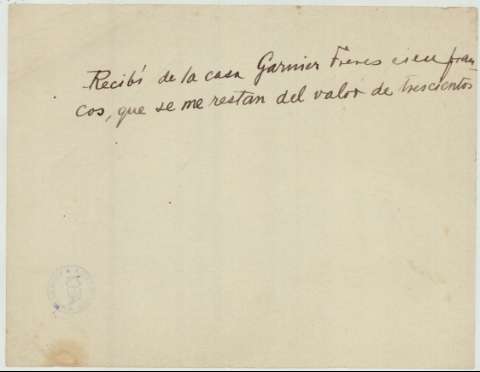 Recibí de la casa Garnier Frères cien fran
cos, que se me restan del valor de trescientos